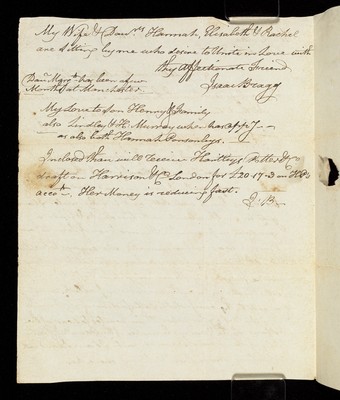 My Wife & Daurs Hannah, Elisabeth & Rachel
are sitting by me who desire to Unite in Love with
thy affectionate Friend
Isaac Bragg
Daur Margt has been a few
Months at Manchester
My Love to Son Henry & Family
also Lindley & H. Murray when has oppty
as also both Hannah Ponsonbys.
Inclosed thou will receive Hartleys Letter &
draft on Harrison & Co London for £20-17-3 on HP's
accot. Her Money is reducing fast.
I: B